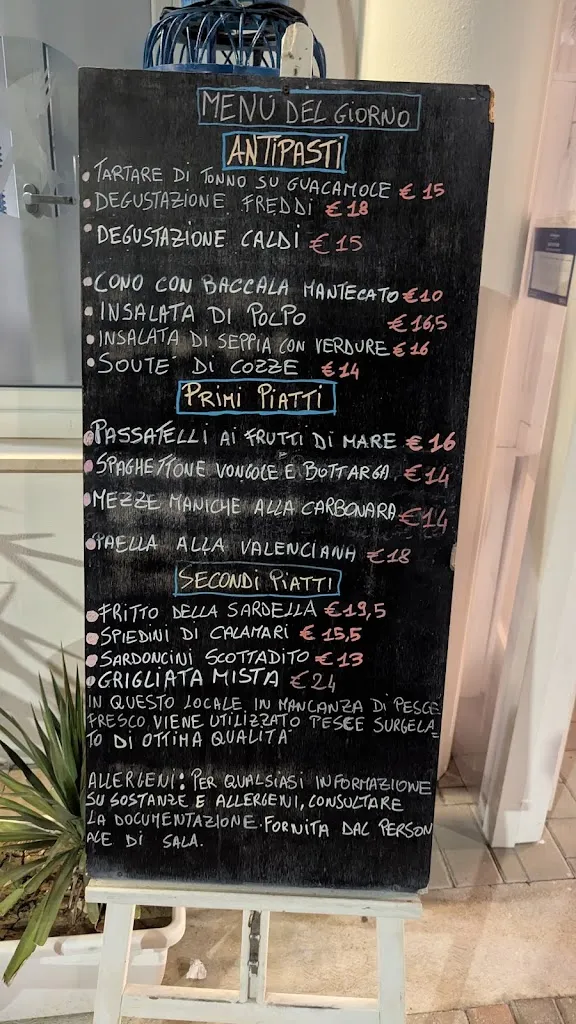 MENÚ DEL GIORNO
ANTIPASTI
• TARTARE DI TONNO SU GUACAMOLE € 15
• DEGUSTAZIONE FREDDI € 18
• DEGUSTAZIONE CALDI € 15
• CONO CON BACCALA MANTECATO € 10
• INSALATA DI POLPO € 16,5
• INSALATA DI SEPPIA CON VERDURE € 16
• SOUTE' DI COZZE € 14
PRIMI PIATTI
• PASSATELLI AI FRUTTI DI MARE € 16
• SPAGHETTONE VONGOLE E BOTTARGA € 14
• MEZZE MANICHE ALLA CARBONARA € 14
• PAELLA ALLA VALENCIANA € 18
SECONDI PIATTI
• FRITTO DELLA SARDELLA € 19,5
• SPIEDINI DI CALAMARI € 15,5
• SARDONCINI SCOTTADITO € 13
• GRIGLIATA MISTA € 24
IN QUESTO LOCALE IN MANCANZA DI PESCE
FRESCO VIENE UTILIZZATO PESCE SURGELA_
TO DI OTTIMA QUALITA'
ALLERGENI: PER QUALSIASI INFORMAZIONE
SU SOSTANZE E ALLERGENI, CONSULTARE
LA DOCUMENTAZIONE. FORNITA DAL PERSON
ALE DI SALA.